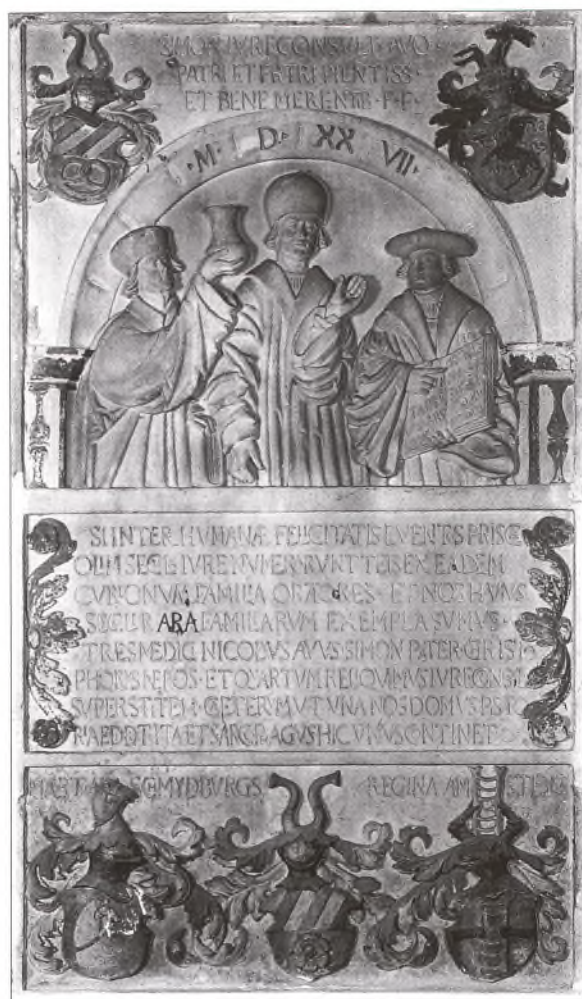 SIMON IVRECONSVLT AVO
PATRI ET FRTRI PIENTISS
ET BENE MERENTB · F · F ·
· M · D · XX VII ·
SI INTER HVMANÆ FELICITATIS EVENTS PRISC
OLIM SECLI IVRE NVMERARVNT TEIS EX EADEM
CVRIONVM FAMILIA ORATORES · ET NOS HVIVS
SECLI RARA FAMILIARVM EXEMPLA SVMVS ·
TRES MEDIC NICOLVS AVVS SIMON PATER CRISTI
PHORVS NEPOS · ET QVARTVM RELIQVIMVS IVRECNSL
SVPERSTITEM · CETERVM VT VNA NOS DOMVS PIST
RIA EDDIT ITA ET SARCFAGVS HIC VNVS CNTINET
SCHMYDBVRGS REGINA AM